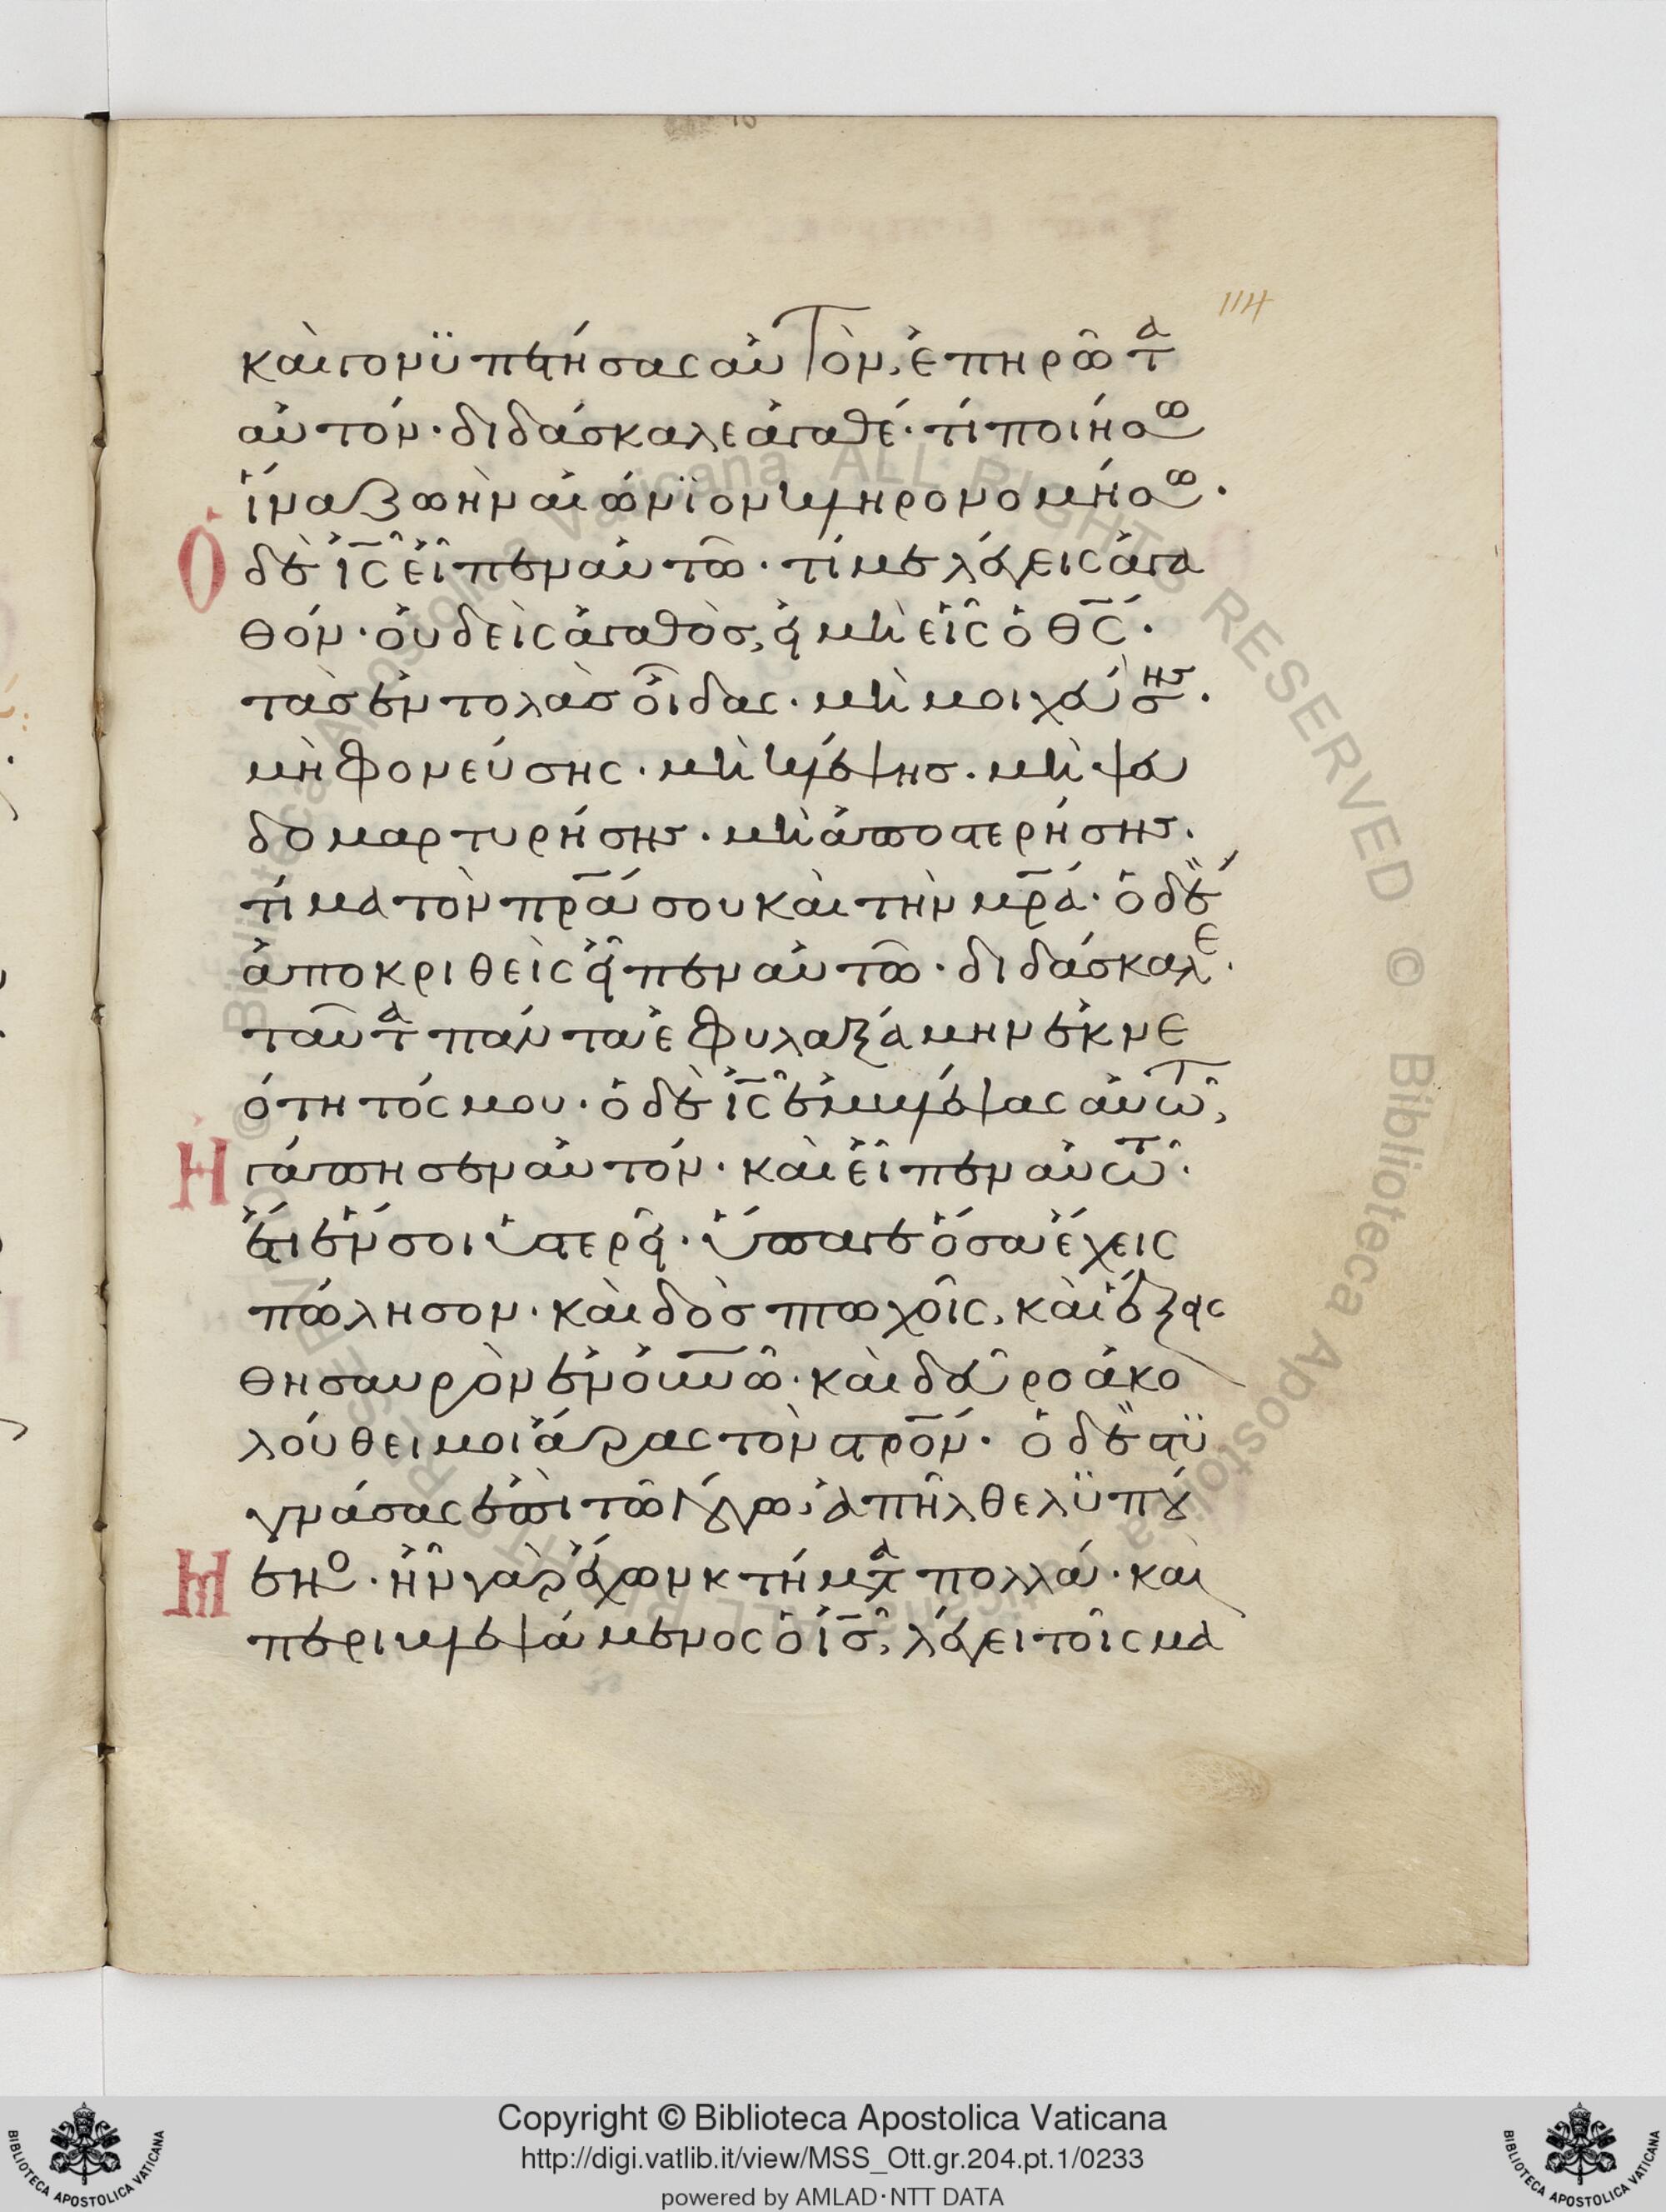 114
καὶ γονϋπετήσας αὐτὸν, ἐπηρῶτα
αὐτόν· διδάσκαλε ἀγαθέ· τί ποιήσω
ἵνα ζωὴν αἰώνϊον κληρονομήσω·
Ὁ δὲ ἰς εἶπεν αὐτῶ· τί με λέγεις ἀγα
θόν· οὐδεὶς ἀγαθὸς, εἰ μὴ εἷς ὁ θς·
τὰς ἐντολὰς οἶδας· μὴ μοιχεύσης·
μὴ φονεύσης· μὴ κλέψης· μὴ ψευ
δομαρτυρήσης· μὴ ἀποστερήσης·
τίμα τὸν πρα σου καὶ τὴν μρα· ὁ δὲ
ἀποκριθεὶς εἶπεν αὐτῶ· διδάσκαλε·
ταῦτα πάντα ἐφυλαξάμην ἐκ νε
ότητός μου· ὁ δὲ ἰς ἐμβλέψας αὐτῶ,
Ἠγάπησεν αὐτόν· καὶ εἶπεν αὐτῶ·
ἕν σοι ὑστερεῖ· ὕπαγε ὅσα ἔχεις
πώλησον· καὶ δὸς πτωχοῖς, καὶ ἕξεις
θησαυρὸν ἐν οὐνῶ· καὶ δεῦρο ἀκο
λούθει μοι ἄρας τὸν στρον· ὁ δὲ στϋ
γνάσας ἐπὶ τῶ λόγω, ἀπῆλθε λϋπού
μενος· ἦν γὰρ ἔχων κτήματα πολλά· καὶ
περιβλεψάμενος ὁ ἰς, λέγει τοῖς μα
Copyright © Biblioteca Apostolica Vaticana
http://digi.vatlib.it/view/MSS_Ott.gr.204.pt.1/0233
powered by AMLAD·NTT DATA